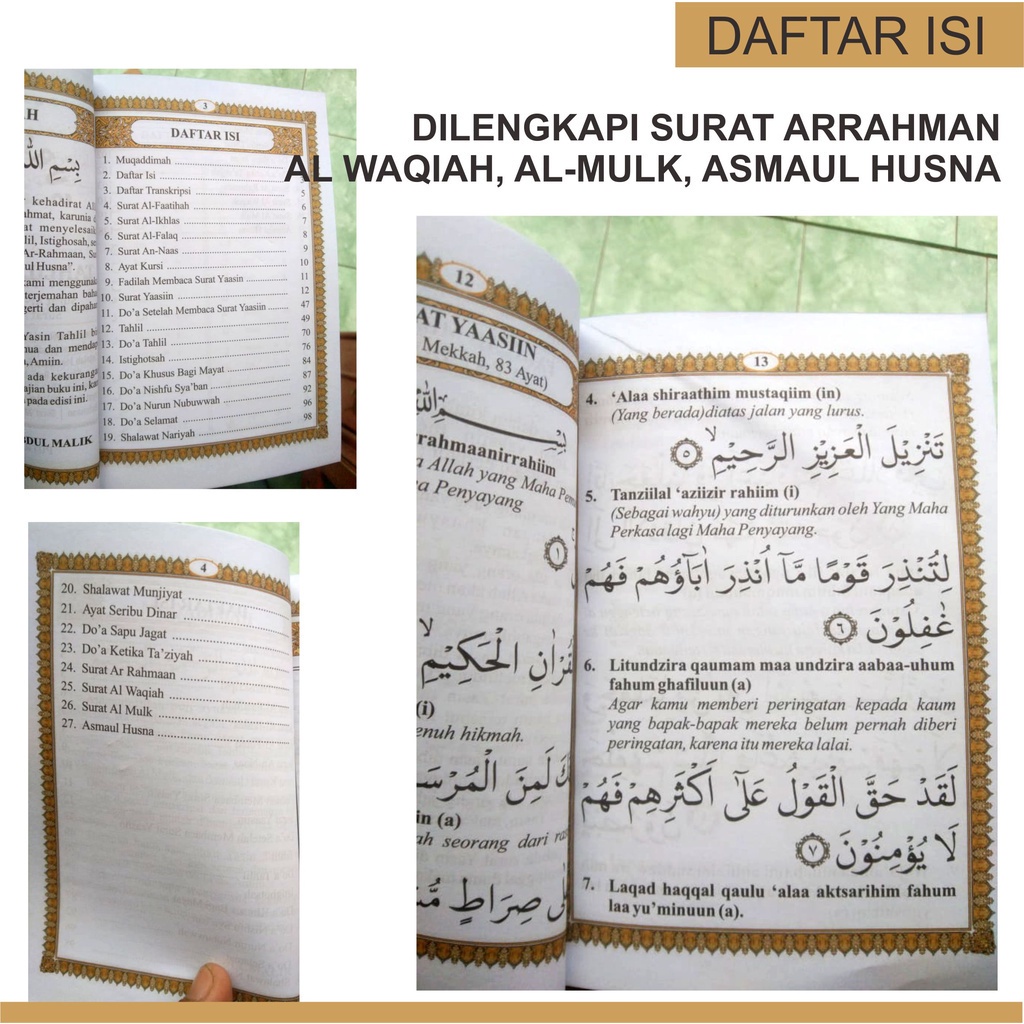 DAFTAR ISI
DILENGKAPI SURAT ARRAHMAN
AL WAQIAH, AL-MULK, ASMAUL HUSNA
بِسْمِ اللّٰهِ
kehadirat
karunia
menyelesaik
Istighosah,
Ar-Rahmaan,
ul Husna”.
kami menggunak
terjemahan
gerti dan dipah
Yasin Tahlil
Amiin.
ada kekuranga
ajian buku ini,
pada edisi ini.
BDUL MALIK
3
DAFTAR ISI
1. Muqaddimah
2. Daftar Isi
3. Daftar Transkripsi 5
4. Surat Al-Faatihah 6
5. Surat Al-Ikhlas 7
6. Surat Al-Falaq 8
7. Surat An-Naas 9
8. Ayat Kursi 10
9. Fadilah Membaca Surat Yaasin 11
10. Surat Yaasiin 12
11. Do’a Setelah Membaca Surat Yaasiin 47
12. Tahlil 49
13. Do’a Tahlil 70
14. Istighotsah 76
15. Do’a Khusus Bagi Mayat 84
16. Do’a Nishfu Sya’ban 87
17. Do’a Nurun Nubuwwah 92
18. Do’a Selamat 96
19. Shalawat Nariyah 98
4
20. Shalawat Munjiyat
21. Ayat Seribu Dinar
22. Do’a Sapu Jagat
23. Do’a Ketika Ta’ziyah
24. Surat Ar Rahmaan
25. Surat Al Waqiah
26. Surat Al Mulk
27. Asmaul Husna
12
AT YAASIIN
Mekkah, 83 Ayat)
بِسْمِ اللّٰهِ
rrahmaanirrahiim
a Allah yang Maha Pe
a Penyayang
١
لْقُرْاٰنِ الْحَكِيْمِ
(i)
enuh hikmah.
كَ لَمِنَ الْمُرْسَ
in (a)
ah seorang dari
عَلٰى صِرَاطٍ
13
4. ‘Alaa shiraathim mustaqiim (in)
(Yang berada)diatas jalan yang lurus.
تَنْزِيْلَ الْعَزِيْزِ الرَّحِيْمِۙ ٥
5. Tanziilal ‘aziizir rahiim (i)
(Sebagai wahyu) yang diturunkan oleh Yang Maha
Perkasa lagi Maha Penyayang.
لِتُنْذِرَ قَوْمًا مَّآ اُنْذِرَ اٰبَاۤؤُهُمْ فَهُمْ
غٰفِلُوْنَ ٦
6. Litundzira qaumam maa undzira aabaa-uhum
fahum ghafiluun (a)
Agar kamu memberi peringatan kepada kaum
yang bapak-bapak mereka belum pernah diberi
peringatan, karena itu mereka lalai.
لَقَدْ حَقَّ الْقَوْلُ عَلٰٓى اَكْثَرِهِمْ فَهُمْ
لَا يُؤْمِنُوْنَ ٧
7. Laqad haqqal qaulu ‘alaa aktsarihim fahum
laa yu’minuun (a).